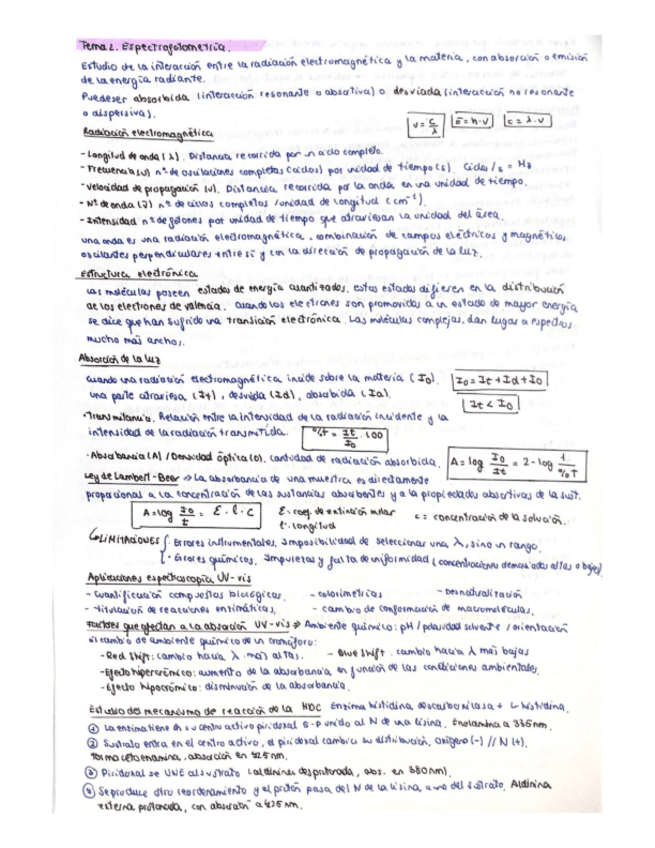 Tema 2. Espectrofotometría.
Estudio de la interacción entre la radiación electromagnética y la materia, con absorción o emisión
de la energía radiante.
Puede ser absorbida (interacción resonante o absortiva) o desviada (interacción no resonante
o dispersiva).
ν = c/λ
c = λ·ν
Radiación electromagnética
- Longitud de onda (λ). Distancia recorrida por un ciclo completo.
- Frecuencia (ν) nº de oscilaciones completas (ciclos) por unidad de tiempo (s). Ciclos/s = Hz
- Velocidad de propagación (v). Distancia recorrida por la onda en una unidad de tiempo.
- Nº de onda (ν̄) nº de ciclos completos / unidad de longitud (cm⁻¹)
- Intensidad nº de fotones por unidad de tiempo que atraviesan la unidad del área.
una onda es una radiación electromagnética, combinación de campos eléctricos y magnéticos
oscilantes perpendiculares entre sí y con la dirección de propagación de la luz.
Estructura electrónica
Las moléculas poseen estados de energía cuantizados. Estos estados difieren en la distribución
de los electrones de valencia. Cuando los electrones son promovidos a un estado de mayor energía
se dice que han sufrido una transición electrónica. Las moléculas complejas, dan lugar a espectros
mucho más anchos.
Absorción de la luz
Cuando una radiación electromagnética incide sobre la materia (I0)
una parte atraviesa (It), desvida (Id), absorbida (Ia).
I0 = It + Id + I0
It < I0
· Transmitancia. Relación entre la intensidad de la radiación incidente y la
intensidad de la radiación transmitida. %T = It/I0 · 100
· Absorbancia (A) / Densidad óptica (O). cantidad de radiación absorbida. A = log I0/It = 2 - log 1/%T
Ley de Lambert-Beer => La absorbancia de una muestra es directamente
proporcional a la concentración de las sustancias absorbentes y a la propiedades absortivas de la sust.
A = log I0/t = ε · l · c
ε = coef. de extinción molar
l = longitud
c = concentración de la solución.
LIMITACIONES · Errores instrumentales. Imposibilidad de seleccionar una λ, sino un rango.
· Errores químicos. Impurezas y falta de uniformidad (concentraciones demasiado altas o bajas).
Aplicaciones espectroscopia UV-vis
- Cuantificación compuestos biológicos. - colorimetrías - Desnaturalización
- titulación de reacciones enzimáticas. - cambio de conformación de macromoléculas.
Factores que afectan a la absorción UV-vis => Ambiente químico: pH / polaridad solvente / orientación
El cambio de ambiente químico de un cromóforo:
- Red Shift: cambio hacia λ más altas. - Blue Shift. cambio hacia λ más bajas
- Efecto hipercrómico: aumento de la absorbancia en función de las condiciones ambientales.
- Efecto hipocrómico: disminución de la absorbancia.
Estudio del mecanismo de reacción de la HDC Enzima histidina descarboxilasa + L-histidina.
① La enzima tiene en su centro activo piridoxal 5-P unido al N de una lisina. Enolamina a 335nm.
② Sustrato entra en el centro activo, el piridoxal cambia su distribución, oxígeno (-) // N (+).
forma cetoenamina, absorción en 425nm.
③ Piridoxal se UNE al sustrato (aldimina desprotonada, abs. en 380nm).
④ Se produce otro reordenamiento y el protón pasa del N de la lisina a uno del sustrato. Aldimina
externa protonada, con absorción a 425nm.